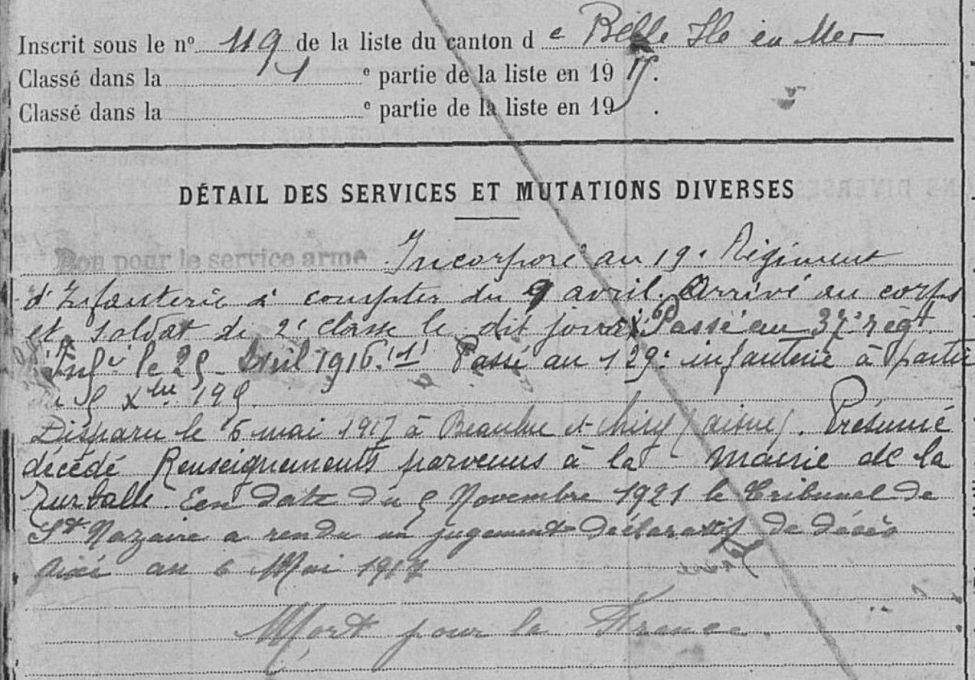 Inscrit sous le nº 119 de la liste du canton de Belle Ile en Mer
Classé dans la 1 e partie de la liste en 1915.
Classé dans la e partie de la liste en 19 .
DÉTAIL DES SERVICES ET MUTATIONS DIVERSES
Bon pour le service armé Incorporé au 19e Régiment
d'Infanterie à compter du 9 avril. Arrivé au corps
et soldat de 2e classe le dit jour. Passé au 37e régt
Infie le 25 Avril 1916. Passé au 129e infanterie à partir
Xbre
Disparu le 6 mai 1917 à et Chivy (aisne). Présumé
décédé Renseignements parvenus à la mairie de la
Turballe. En date du 5 Novembre 1921 le Tribunal de
St Nazaire a rendu un jugement déclaratif de décès
fixé au 6 Mai 1917
Mort pour la France.